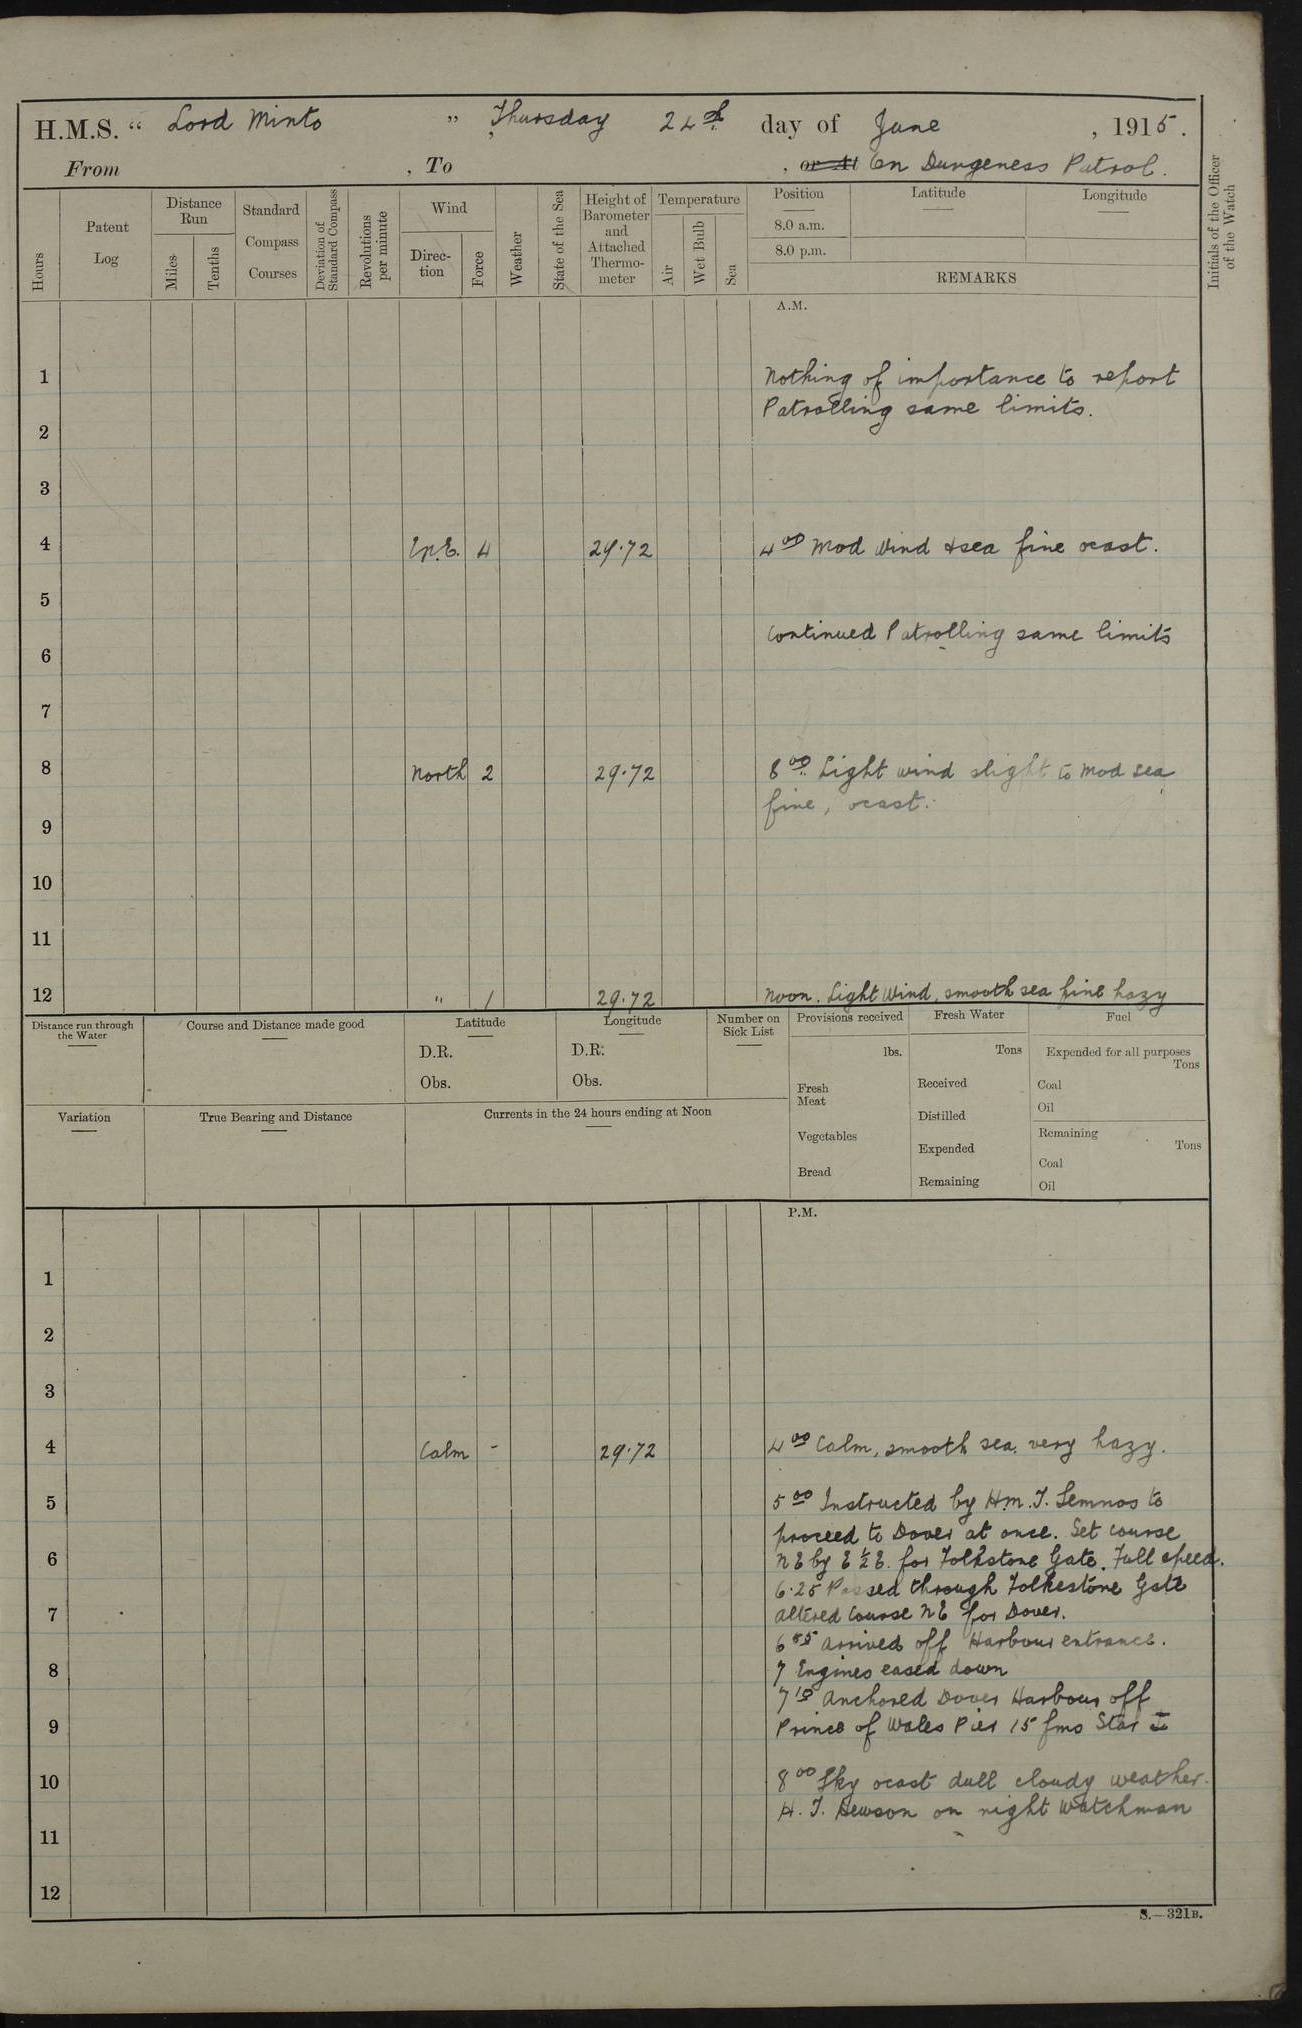 H.M.S. “ Lord Minto ” Thursday 24th day of June , 1915.
From , To , or At On Dungeness Patrol.
Hours
Patent Log
Distance Run
Miles
Tenths
Standard Compass Courses
Deviation of Standard Compass
Revolutions per minute
Wind
Direction
Force
Weather
State of the Sea
Height of Barometer and Attached Thermometer
Temperature
Air
Wet Bulb
Sea
Position
8.0 a.m.
8.0 p.m.
Latitude
Longitude
REMARKS
Initials of the Officer of the Watch
A.M.
1 Nothing of importance to report
Patrolling same limits.
2
3
4 4 29.72 4 00 Mod Wind & sea fine ocast.
5
continued Patrolling same limits
6
7
8 North 2 29.72 8 00 Light wind slight to mod sea
fine, ocast.
9
10
11
12 " 1 29.72 Noon. Light Wind, smooth sea fine hazy
Distance run through the Water
Course and Distance made good
Latitude
D.R.
Obs.
Longitude
D.R.
Obs.
Number on Sick List
Provisions received
lbs.
Fresh Meat
Vegetables
Bread
Fresh Water
Tons
Received
Distilled
Expended
Remaining
Fuel
Expended for all purposes
Tons
Coal
Oil
Remaining
Tons
Coal
Oil
Variation
True Bearing and Distance
Currents in the 24 hours ending at Noon
P.M.
1
2
3
4 Calm - 29.72 4 00 Calm, smooth sea. very hazy.
5 5 00 Instructed by H.M.T. Lemnos to
proceed to Dover at once. Set course
6 NE by E ½ E. for Folkstone Gate. Full speed.
6.25 Passed through Folkestone Gate
7 altered course NE for Dover.
6 55 arrived off Harbour entrance.
8 7 Engines eased down
7 10 Anchored Dover Harbour off
9 Prince of Wales Pier 15 fms Star
10 8 00 Sky ocast dull cloudy weather.
H. T. Hewson on night Watchman
11
12
S.—321B.